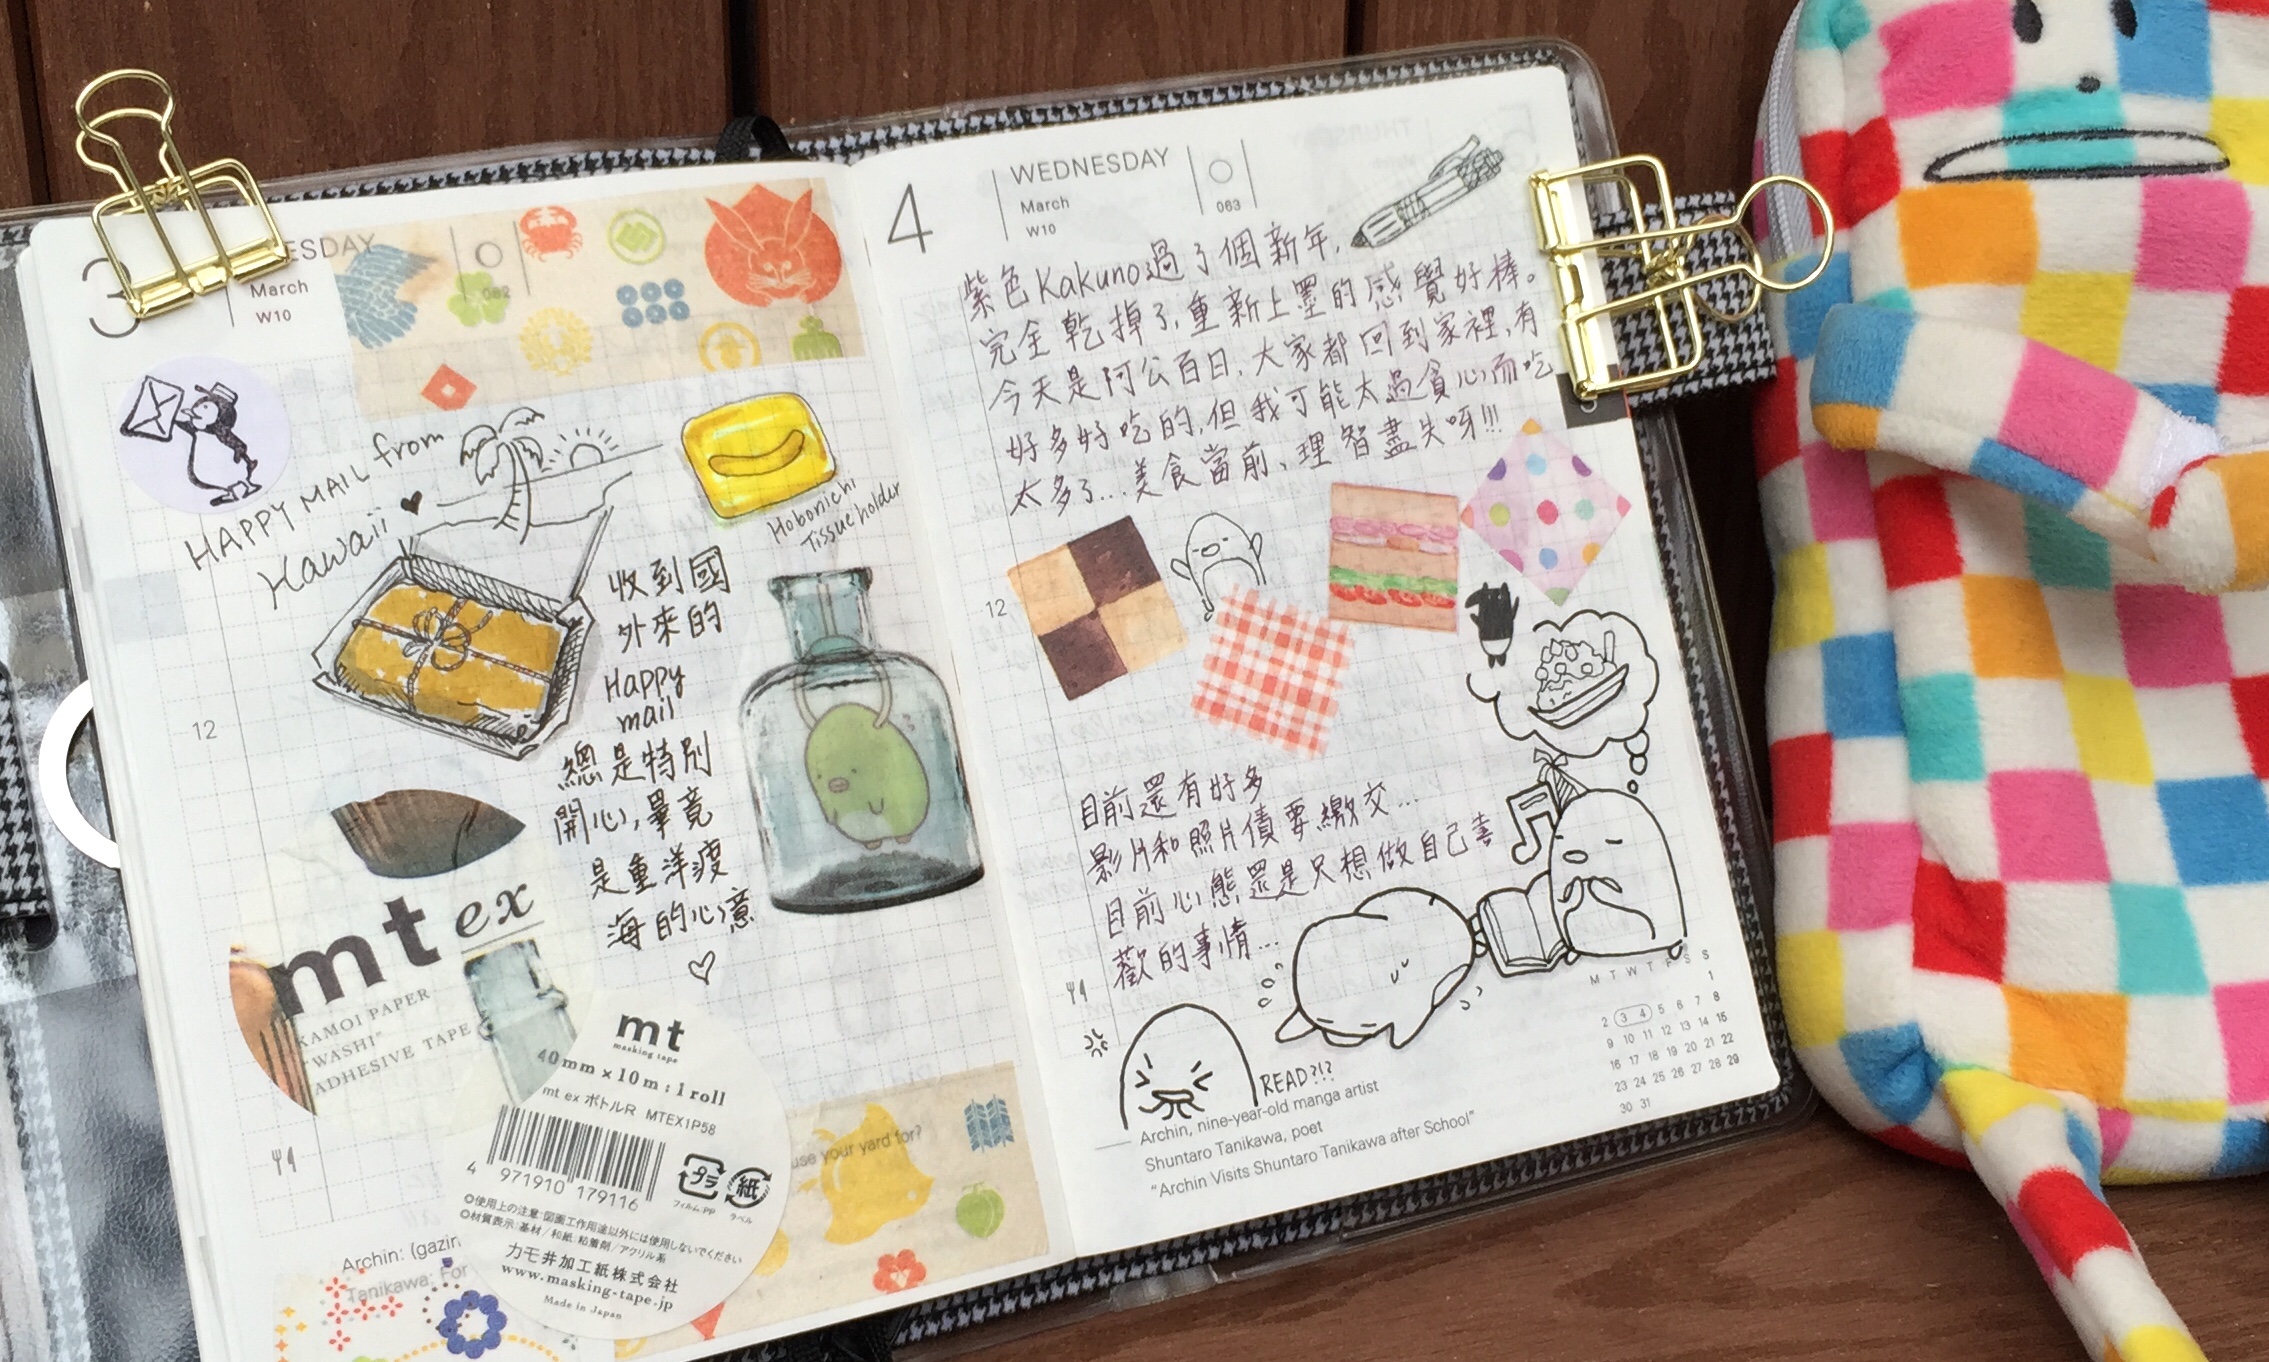 3
ESDAY
March
W10
082
HAPPY MAIL from
Hawaii ♥
Hobonichi
Tissue holder
收到國
外來的
Happy
mail
總是特別
開心,畢竟
是重洋渡
海的心意
♡
12
mt ex
KAMOI PAPER
"WASHI"
ADHESIVE TAPE
mt
masking tape
40mm×10m:1roll
mt ex ボトルR MTEX1P58
4 971910 179116
プラ
フィルム:PP
紙
ラベル
◎使用上の注意:図画工作用途以外には使用しないでください
◎材質表示:基材/和紙 粘着剤/アクリル系
カモ井加工紙株式会社
www.masking-tape.jp
Made in Japan
use your yard for?
Archin: (gazin
Tanikawa: For
4
WEDNESDAY
March
W10
063
紫色Kakuno過了個新年,
完全乾掉了,重新上墨的感覺好棒。
今天是阿公百日,大家都回到家裡,有
好多好吃的,但我可能太過貪心而吃
太多了...美食當前、理智盡失呀!!!
12
目前還有好多
影片和照片債要繳交...
目前心態還是只想做自己喜
歡的事情...
READ?!?
Archin, nine-year-old manga artist
Shuntaro Tanikawa, poet
"Archin Visits Shuntaro Tanikawa after School"
M T W T F S S
1
2 3 4 5 6 7 8
9 10 11 12 13 14 15
16 17 18 19 20 21 22
23 24 25 26 27 28 29
30 31